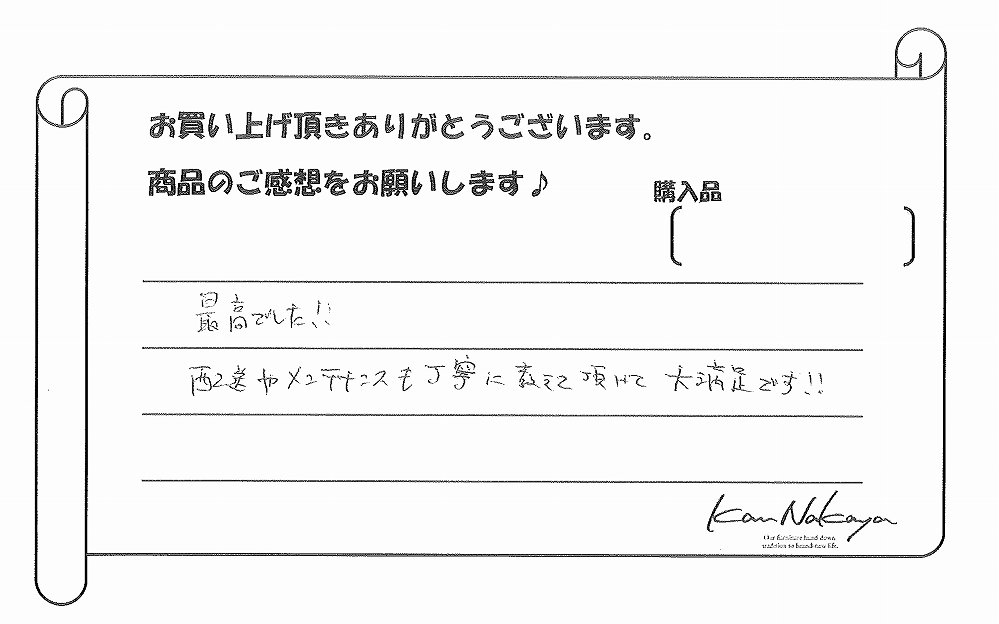 お買い上げ頂きありがとうございます。
商品のご感想をお願いします♪
購入品
最高でした!!
配送やメンテナンスも丁寧に教えて頂けて 大満足です!!
Kan Nakaya
Our furniture hand down
tradition to brand-new life.